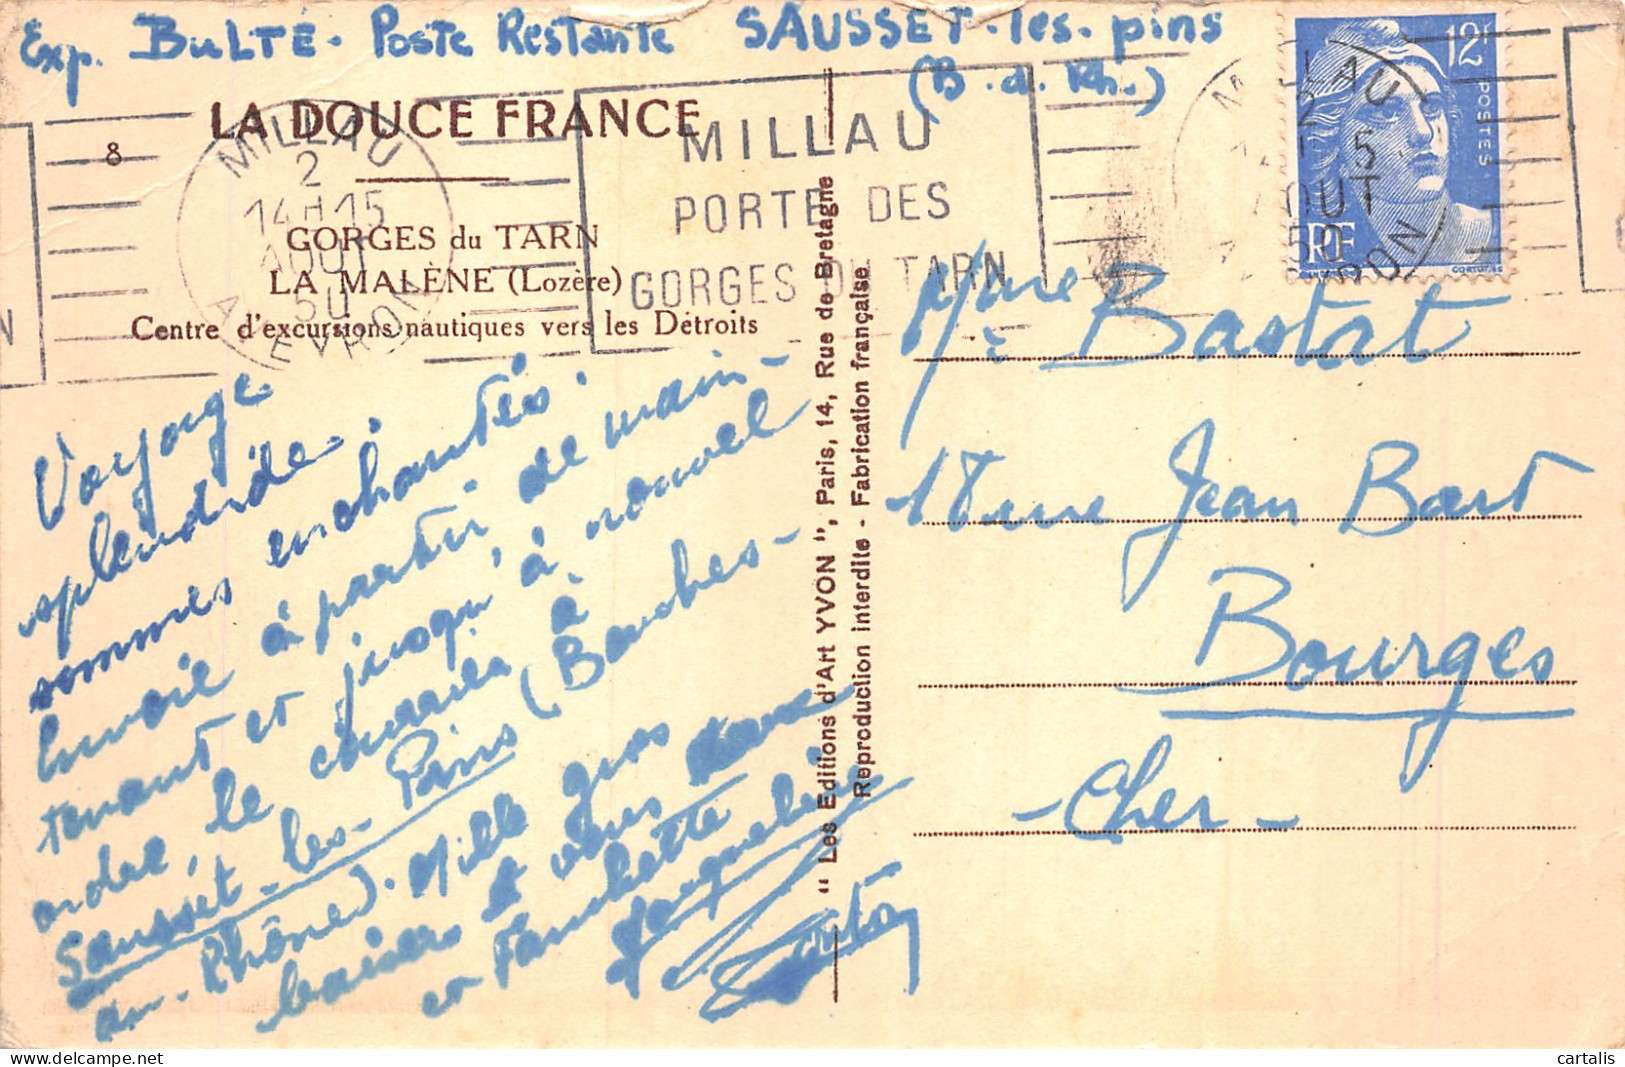 Exp. BuLTÉ - Poste Restante SAUSSET-les-pins
(B.d.Rh.)
8
LA DOUCE FRANCE
GORGES du TARN
LA MALÈNE (Lozère)
Centre d'excursions nautiques vers les Détroits
MILLAU
2
14H15
AOUT
50
AVEYRON
MILLAU
PORTE DES
GORGES DU TARN
12F
POSTES
RF
Voyage
splendide.
sommes enchantés.
Envoie à partir de main-
tenant et jusqu'à nouvel
ordre, le courrier à
Sausset-les-Pins (Bouches-
du-Rhône). Mille gros
baisers à vous
et Fanchette
Jacqueline
" Les Editions d'Art YVON ", Paris, 14, Rue de Bretagne
Reproduction interdite - Fabrication française
Mme Bastat
18 rue Jean Bart
Bourges
- Cher -
cartalis